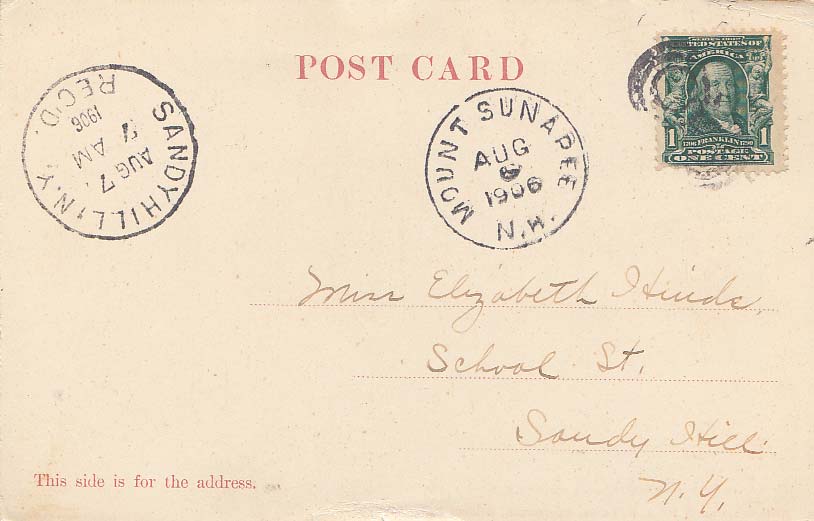 POST CARD
SERIES 1902
UNITED STATES OF
AMERICA
1706 FRANKLIN 1790
1 1
POSTAGE
ONE CENT
SANDY HILL, N.Y.
AUG 7
7 AM
1906
REC'D.
MOUNT SUNAPEE
AUG
6
1906
N.H.
Miss Elizabeth Hinds,
School St.
Sandy Hill
N.Y.
This side is for the address.